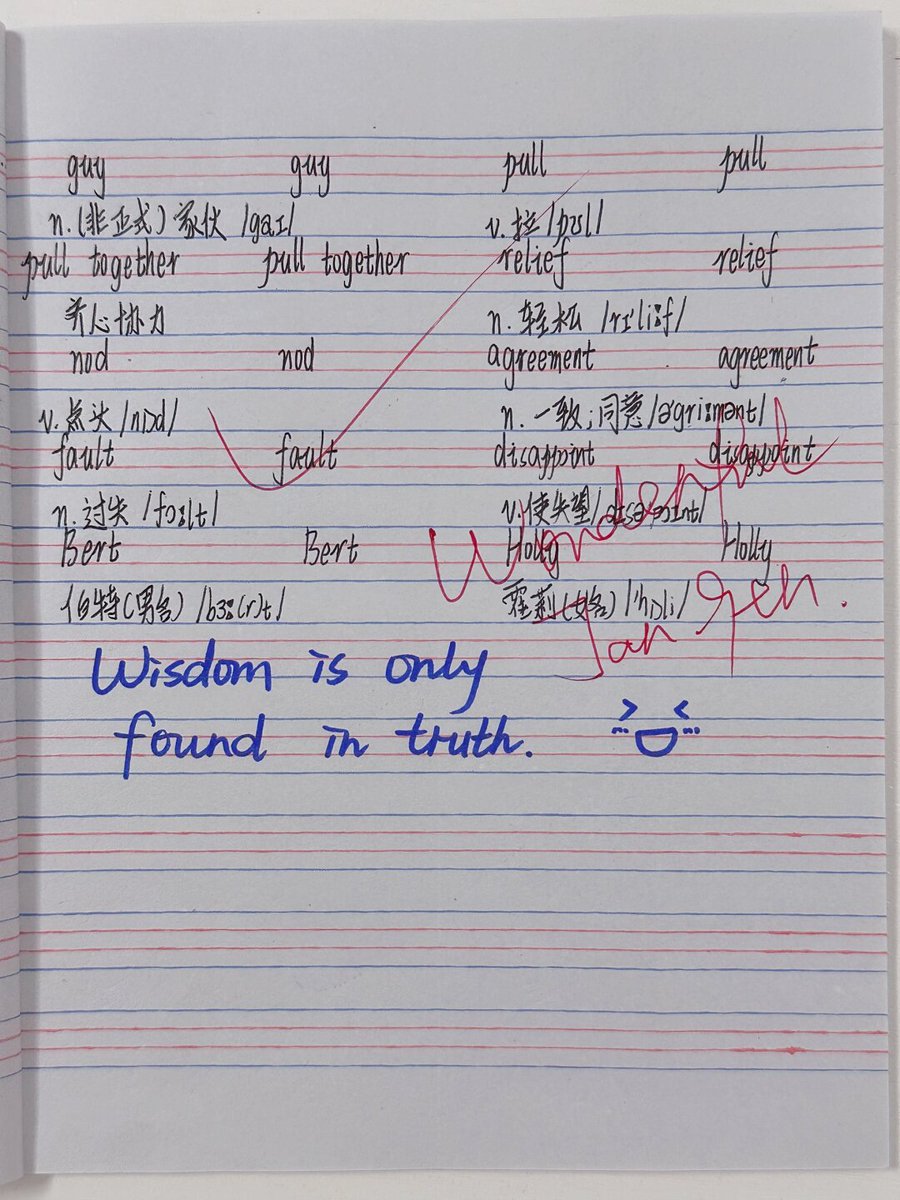 guy guy pull pull
n.(非正式)家伙 /gaɪ/ v.拉 /pʊl/
pull together pull together relief relief
齐心协力 n.轻松 /rɪ'li:f/
nod nod agreement agreement
v.点头 /nɒd/ n.一致;同意 /ə'gri:mənt/
fault fault disappoint disappoint
n.过失 /fɔ:lt/ v.使失望 /dɪsəpɔɪnt/
Wonderful
Bert Bert Holly Holly
伯特(男名) /bɜ:(r)t/ 霍莉(女名) /'hɒli/
Wisdom is only
found in truth.